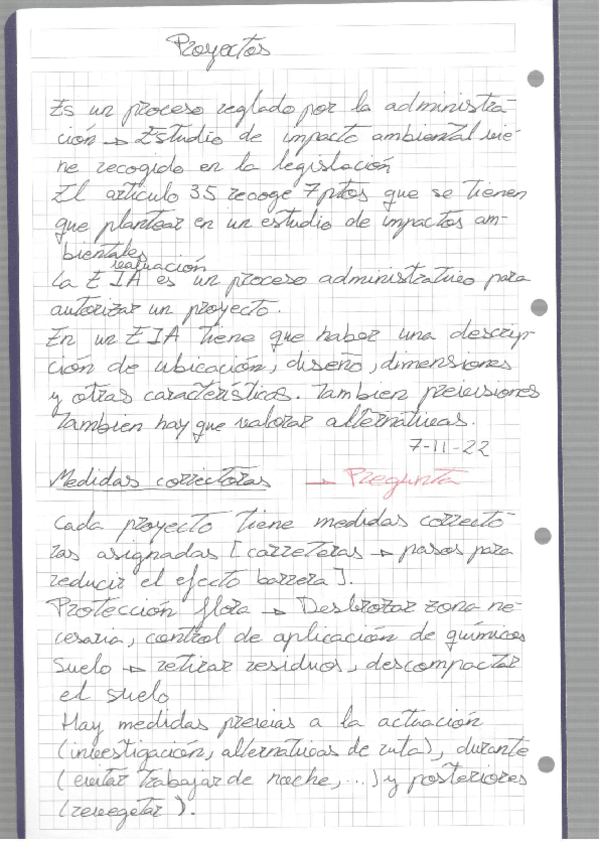 Proyectos
Es un proceso reglado por la administra-
ción → Estudio de impacto ambiental vie-
ne recogido en la legislación
El artículo 35 recoge 7 ptos que se tienen
que plantear en un estudio de impactos am-
bientales
evaluación
La E I A es un proceso administrativo para
autorizar un proyecto.
En un E I A tiene que haber una descrip-
ción de ubicación, diseño, dimensiones
y otras características. Tambien previsiones
Tambien hay que valorar alternativas.
7-11-22
Medidas correctoras → Pregunta
Cada proyecto tiene medidas correcto
ras asignadas [carreteras → pasos para
reducir el efecto barrera].
Protección flora → Desbrozar zona ne-
cesaria, control de aplicación de químicos
Suelo → retirar residuos, descompactar
el suelo
Hay medidas previas a la actuación
(investigación, alternativas de ruta), durante
(evitar trabajar de noche, ...) y posteriores
(revegetar).